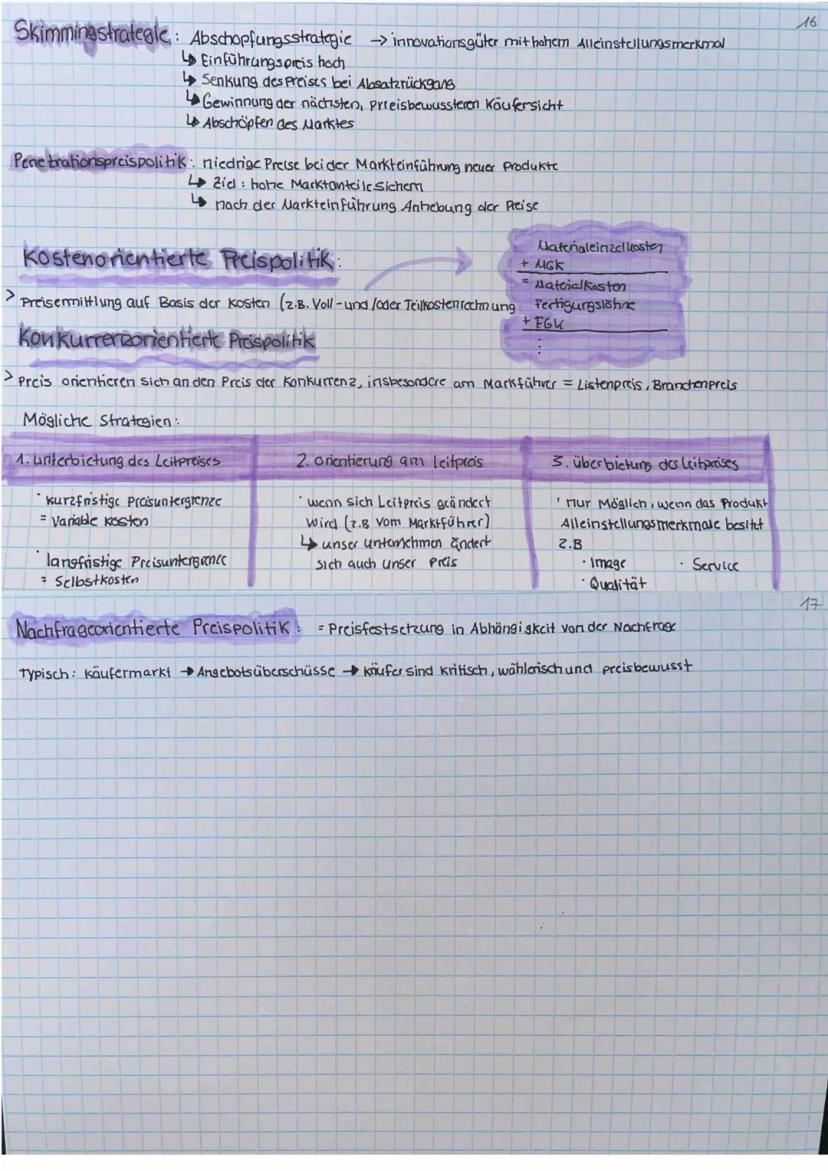 16
Skimmingstrategie: Abschöpfungsstrategie → innovationsgüter mit hohem Alleinstellungsmerkmal
↳ Einführungspreis hoch
↳ Senkung des Preises bei Absatzrückgang
↳ Gewinnung der nächsten, preisbewussteren Käufersicht
↳ Abschöpfen des Marktes
Penetrationspreispolitik: niedrige Preise bei der Markteinführung neuer Produkte
↳ Ziel: hohe Marktanteile sichern
↳ nach der Markteinführung Anhebung der Preise
Kostenorientierte Preispolitik:
> Preisermittlung auf Basis der Kosten (z.B. Voll- und/oder Teilkostenrechnung
Materialeinzelkosten
+ MGK
= Materialkosten
Fertigungslöhne
+ FGK
⋮
Konkurrenzorientierte Preispolitik
> Preis orientieren sich an den Preis der Konkurrenz, insbesondere am Markführer = Listenpreis, Branchenpreis
Mögliche Strategien:
1. unterbietung des Leitpreises
· kurzfristige Preisuntergrenze
= variable Kosten
· langfristige Preisuntergrenze
= Selbstkosten
2. orientierung am leitpreis
· wenn sich Leitpreis geändert
wird (z.B vom Marktführer)
↳ unser unternehmen ändert
sich auch unser Preis
3. überbietung des leitpreises
· nur Möglich, wenn das Produkt
Alleinstellungsmerkmale besitzt
z.B
· Image · Service
· Qualität
17
Nachfrageorientierte Preispolitik: = Preisfestsetzung in Abhängigkeit von der Nachfrage
Typisch: Käufermarkt → Angebotsüberschüsse → Käufer sind kritisch, wählerisch und preisbewusst